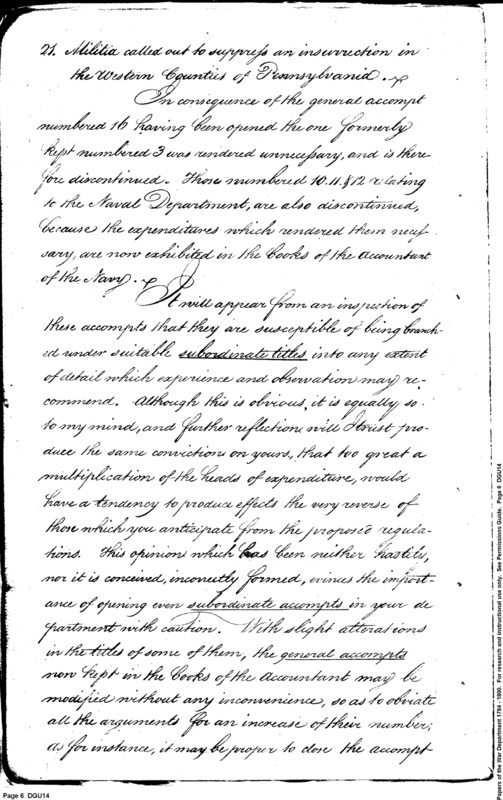 21. Militia called out to suppress an insurrection in
the Western Counties of Pennsylvania.
In consequence of the general accompt
numbered 16 having been opened the one formerly
kept numbered 3 was rendered unnecessary, and is there-
fore discontinued. Those numbered 10. 11. & 12 relating
to the Naval Department, are also discontinued,
because the expenditures which rendered them neces-
sary, are now exhibited in the books of the accountant
of the Navy.
It will appear from an inspection of
these accompts that they are susceptible of being branch-
ed under suitable subordinate titles into any extent
of detail which experience and observation may re-
commend. Although this is obvious, it is equally so
to my mind, and further reflection will I trust pro-
duce the same convictions on yours, that too great a
multiplication of the heads of expenditure, would
have a tendency to produce effects the very reverse of
those which you anticipate from the proposed regula-
tions. This opinion which has been neither hastily,
nor it is conceived, incorrectly formed, evinces the import-
ance of opening even subordinate accompts in your de
partment with caution. With slight alterations
in the titles of some of them, the general accompts
now kept in the books of the accountant may be
modified without any inconvenience, so as to obviate
all the arguments for an increase of their number;
as for instance, it may be proper to close the accompt
Page 6 DGU14
Papers of the War Department 1784 - 1800. For research and instructional use only. See Permissions Guide. Page 6 DGU14